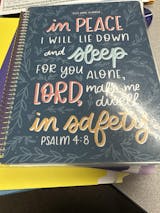 in PEACE
I WILL LIE DOWN
and sleep
FOR YOU ALONE,
LORD, make me
dwell
in safety
PSALM 4:8